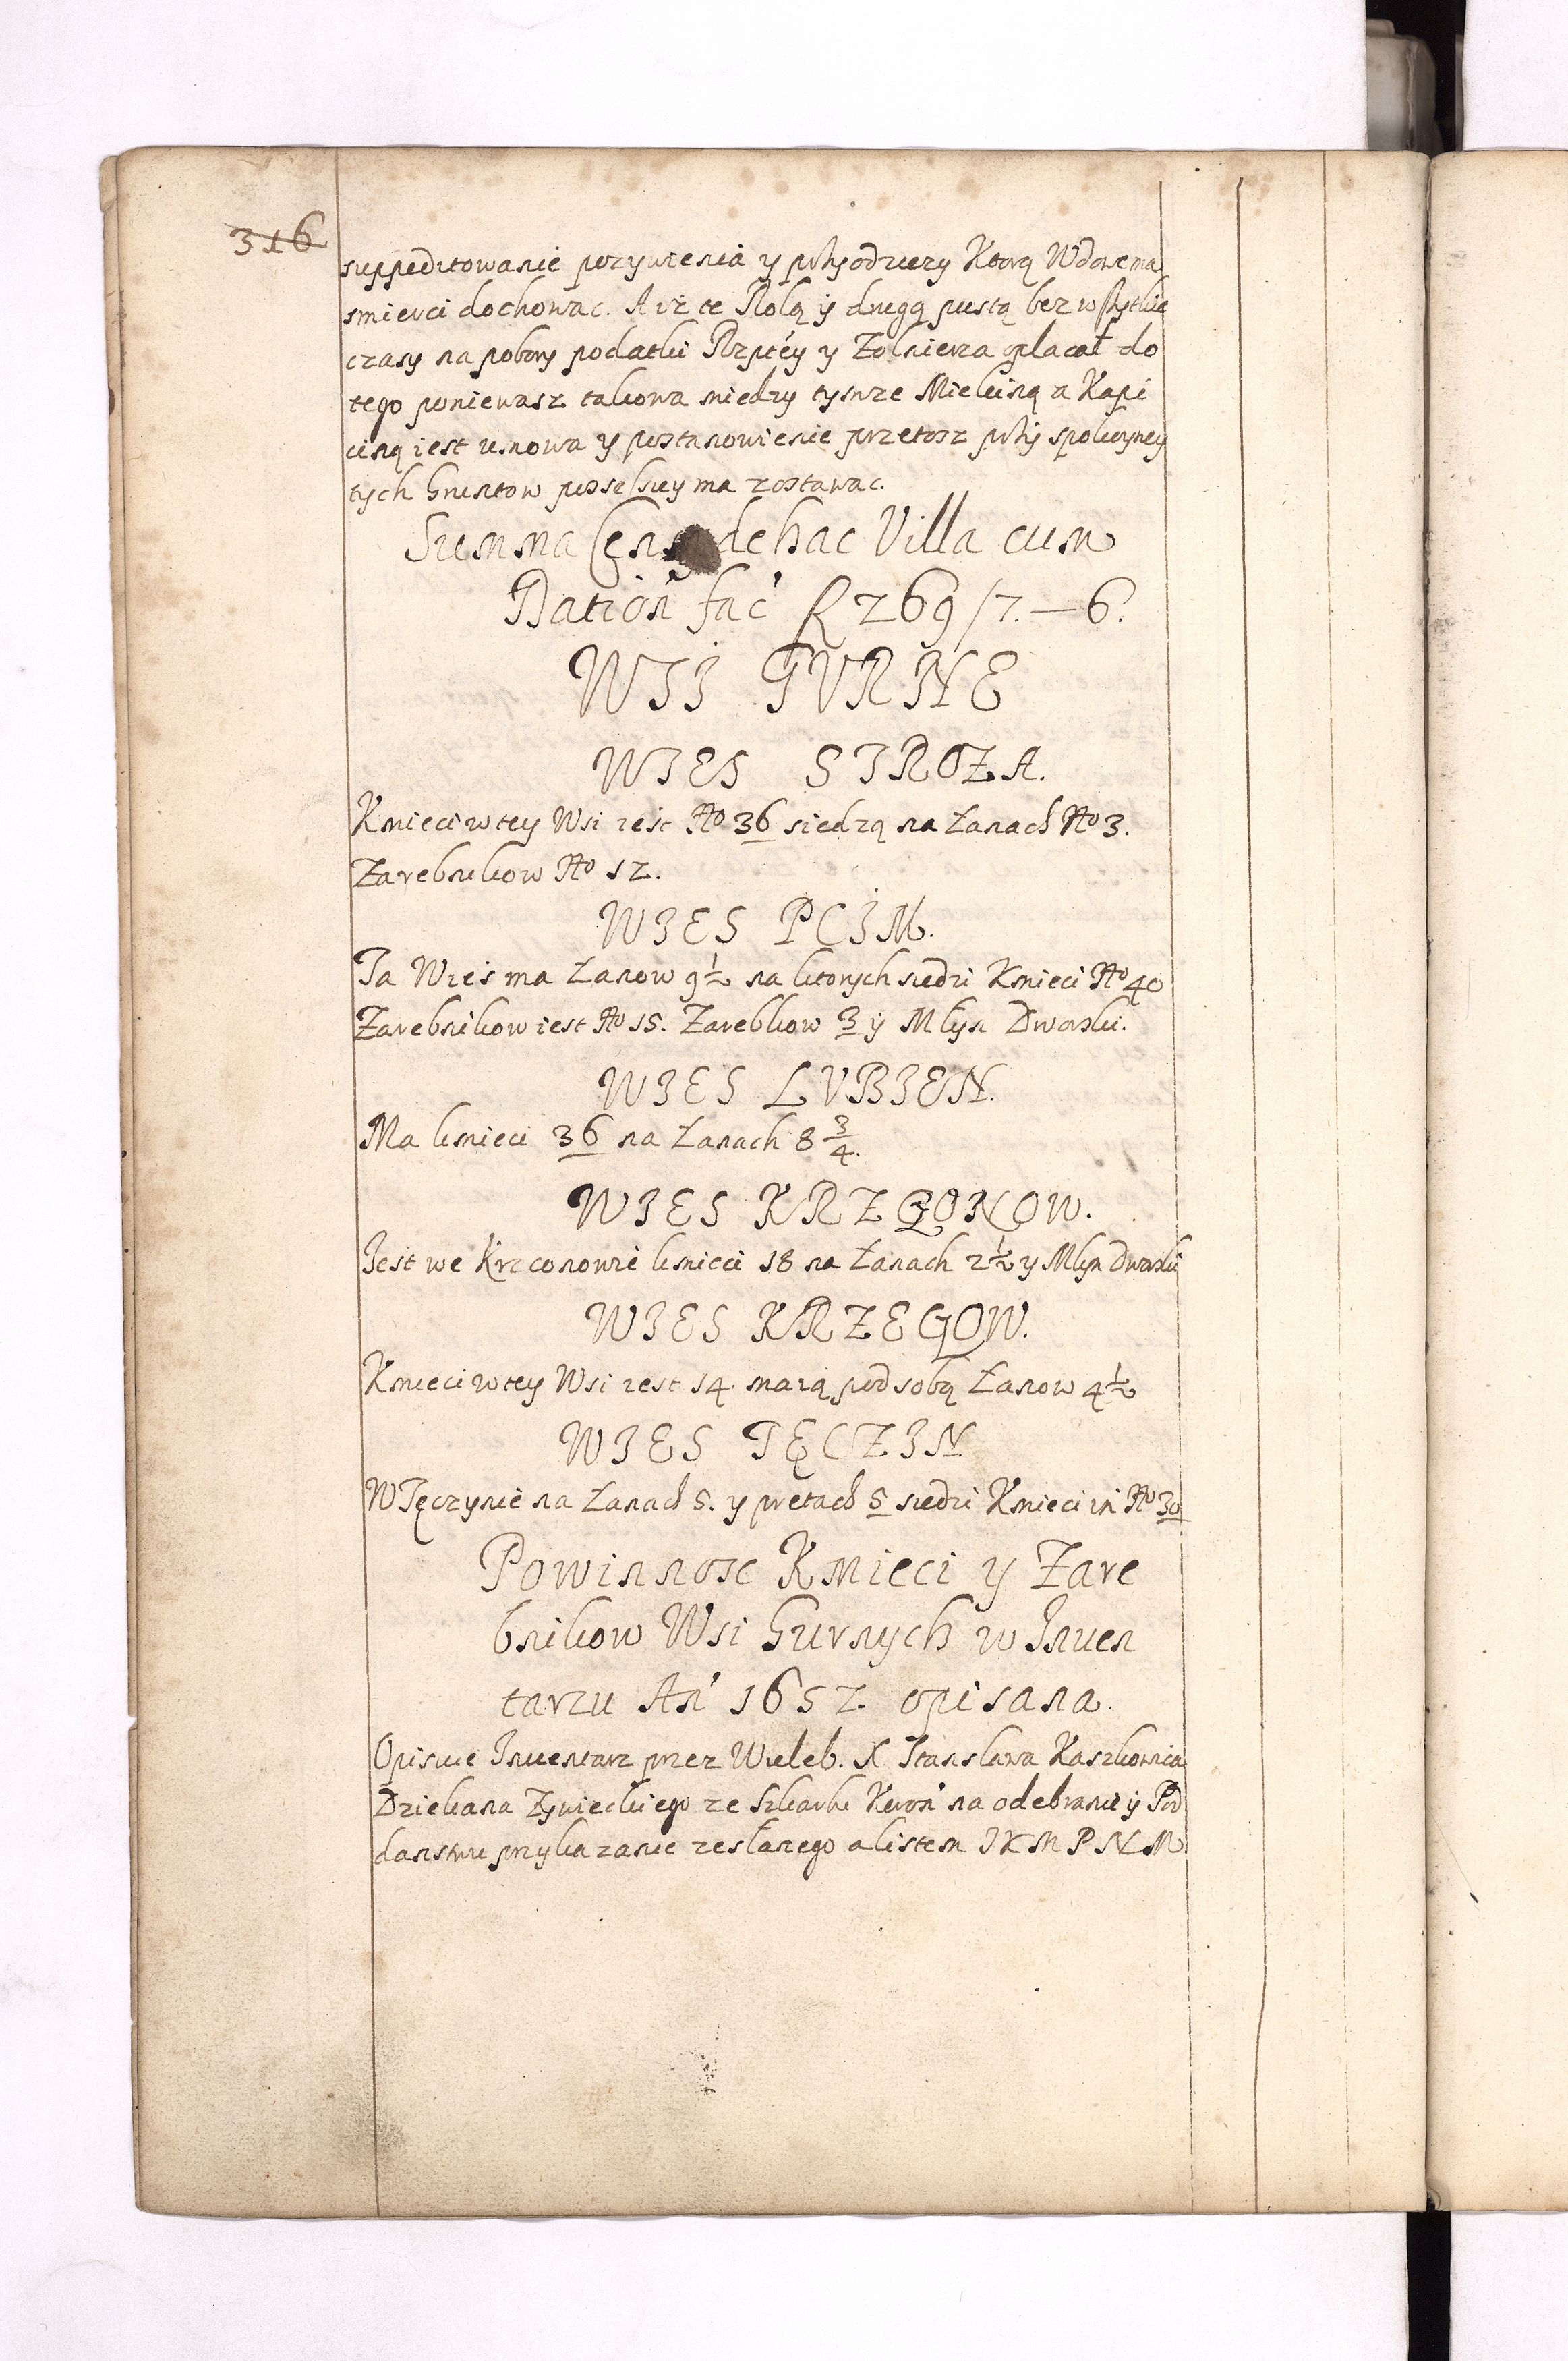 316
suppeditowanie pozywienia y przyodziezy Ktorą Wdowe ma
smierci dochowac. A iż te Rolą ÿ drugą pustą bez wszytkie
czasy na pobory podatki Rzptéy y Zołnierza opłacał do
tego poniewasz takowa miedzy tymze Mielciną a Kapi
ciną iest umowa y postanowienie przetosz przy spokoyney
tych Gruntow possessiey ma zostawac.
Summa de hac Villa cum
Dation' fac' R 269/7.–6.
WSI GURNE
WIES STROZA.
Kmieci w tey Wsi iest No 36 siedzą na Łanach No 3.
Zarebnikow No 12.
WIES PCIM.
Ta Wies ma Łanow 9½ na ktorych siedzi Kmieci No 40
Zarebnikow iest No 15. Zarebkow 3 ÿ Młyn Dworski.
WIES LUBIEN.
Ma kmieci 36 na Łanach 8 3/4.
WIES KRZCZONOW.
Jest we Krzconowie kmieci 18 na Łanach 2½ y Młyn Dworski
WIES KRZEGOW.
Kmieci w tey Wsi iest 14. maią pod sobą Łanow 4½
WIES TĘCZIN
W Tęczynie na Łanach 5. y pretach 5 siedzi Kmieci in No 30
Powinnosc Kmieci y Zare
bnikow Wsi Gurnych w Inuen
tarzu An' 1652 opisana.
Opisuie Inuentarz przez Wieleb. X Stanisława Kaszkowica
Dziekana Zywieckiego ze Skarbu Koron' na odebranie ÿ Pod
danstwu przykazanie zesłanego a listem J K M P N M